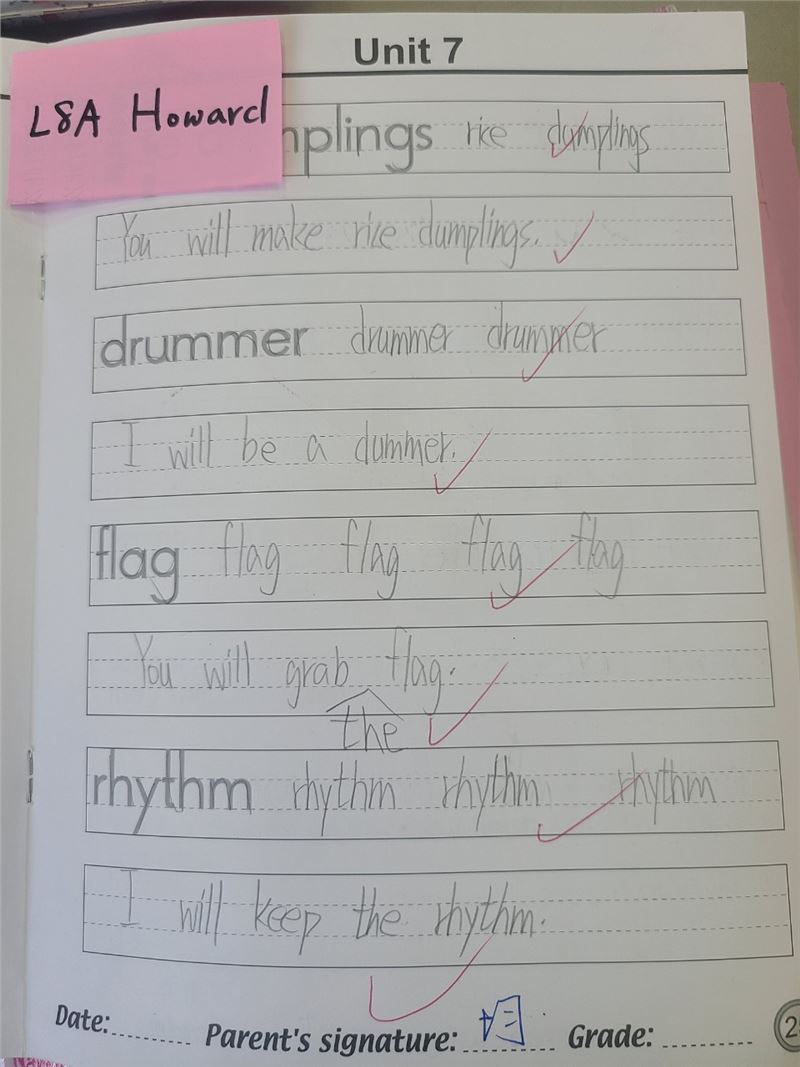 Unit 7
L8A Howard
mplings rice dumplings
You will make rice dumplings.
drummer drummer drummer
I will be a dummer.
flag flag flag flag flag
You will grab flag.
the
rhythm rhythm rhythm rhythm
I will keep the rhythm.
Date: Parent's signature: Grade: